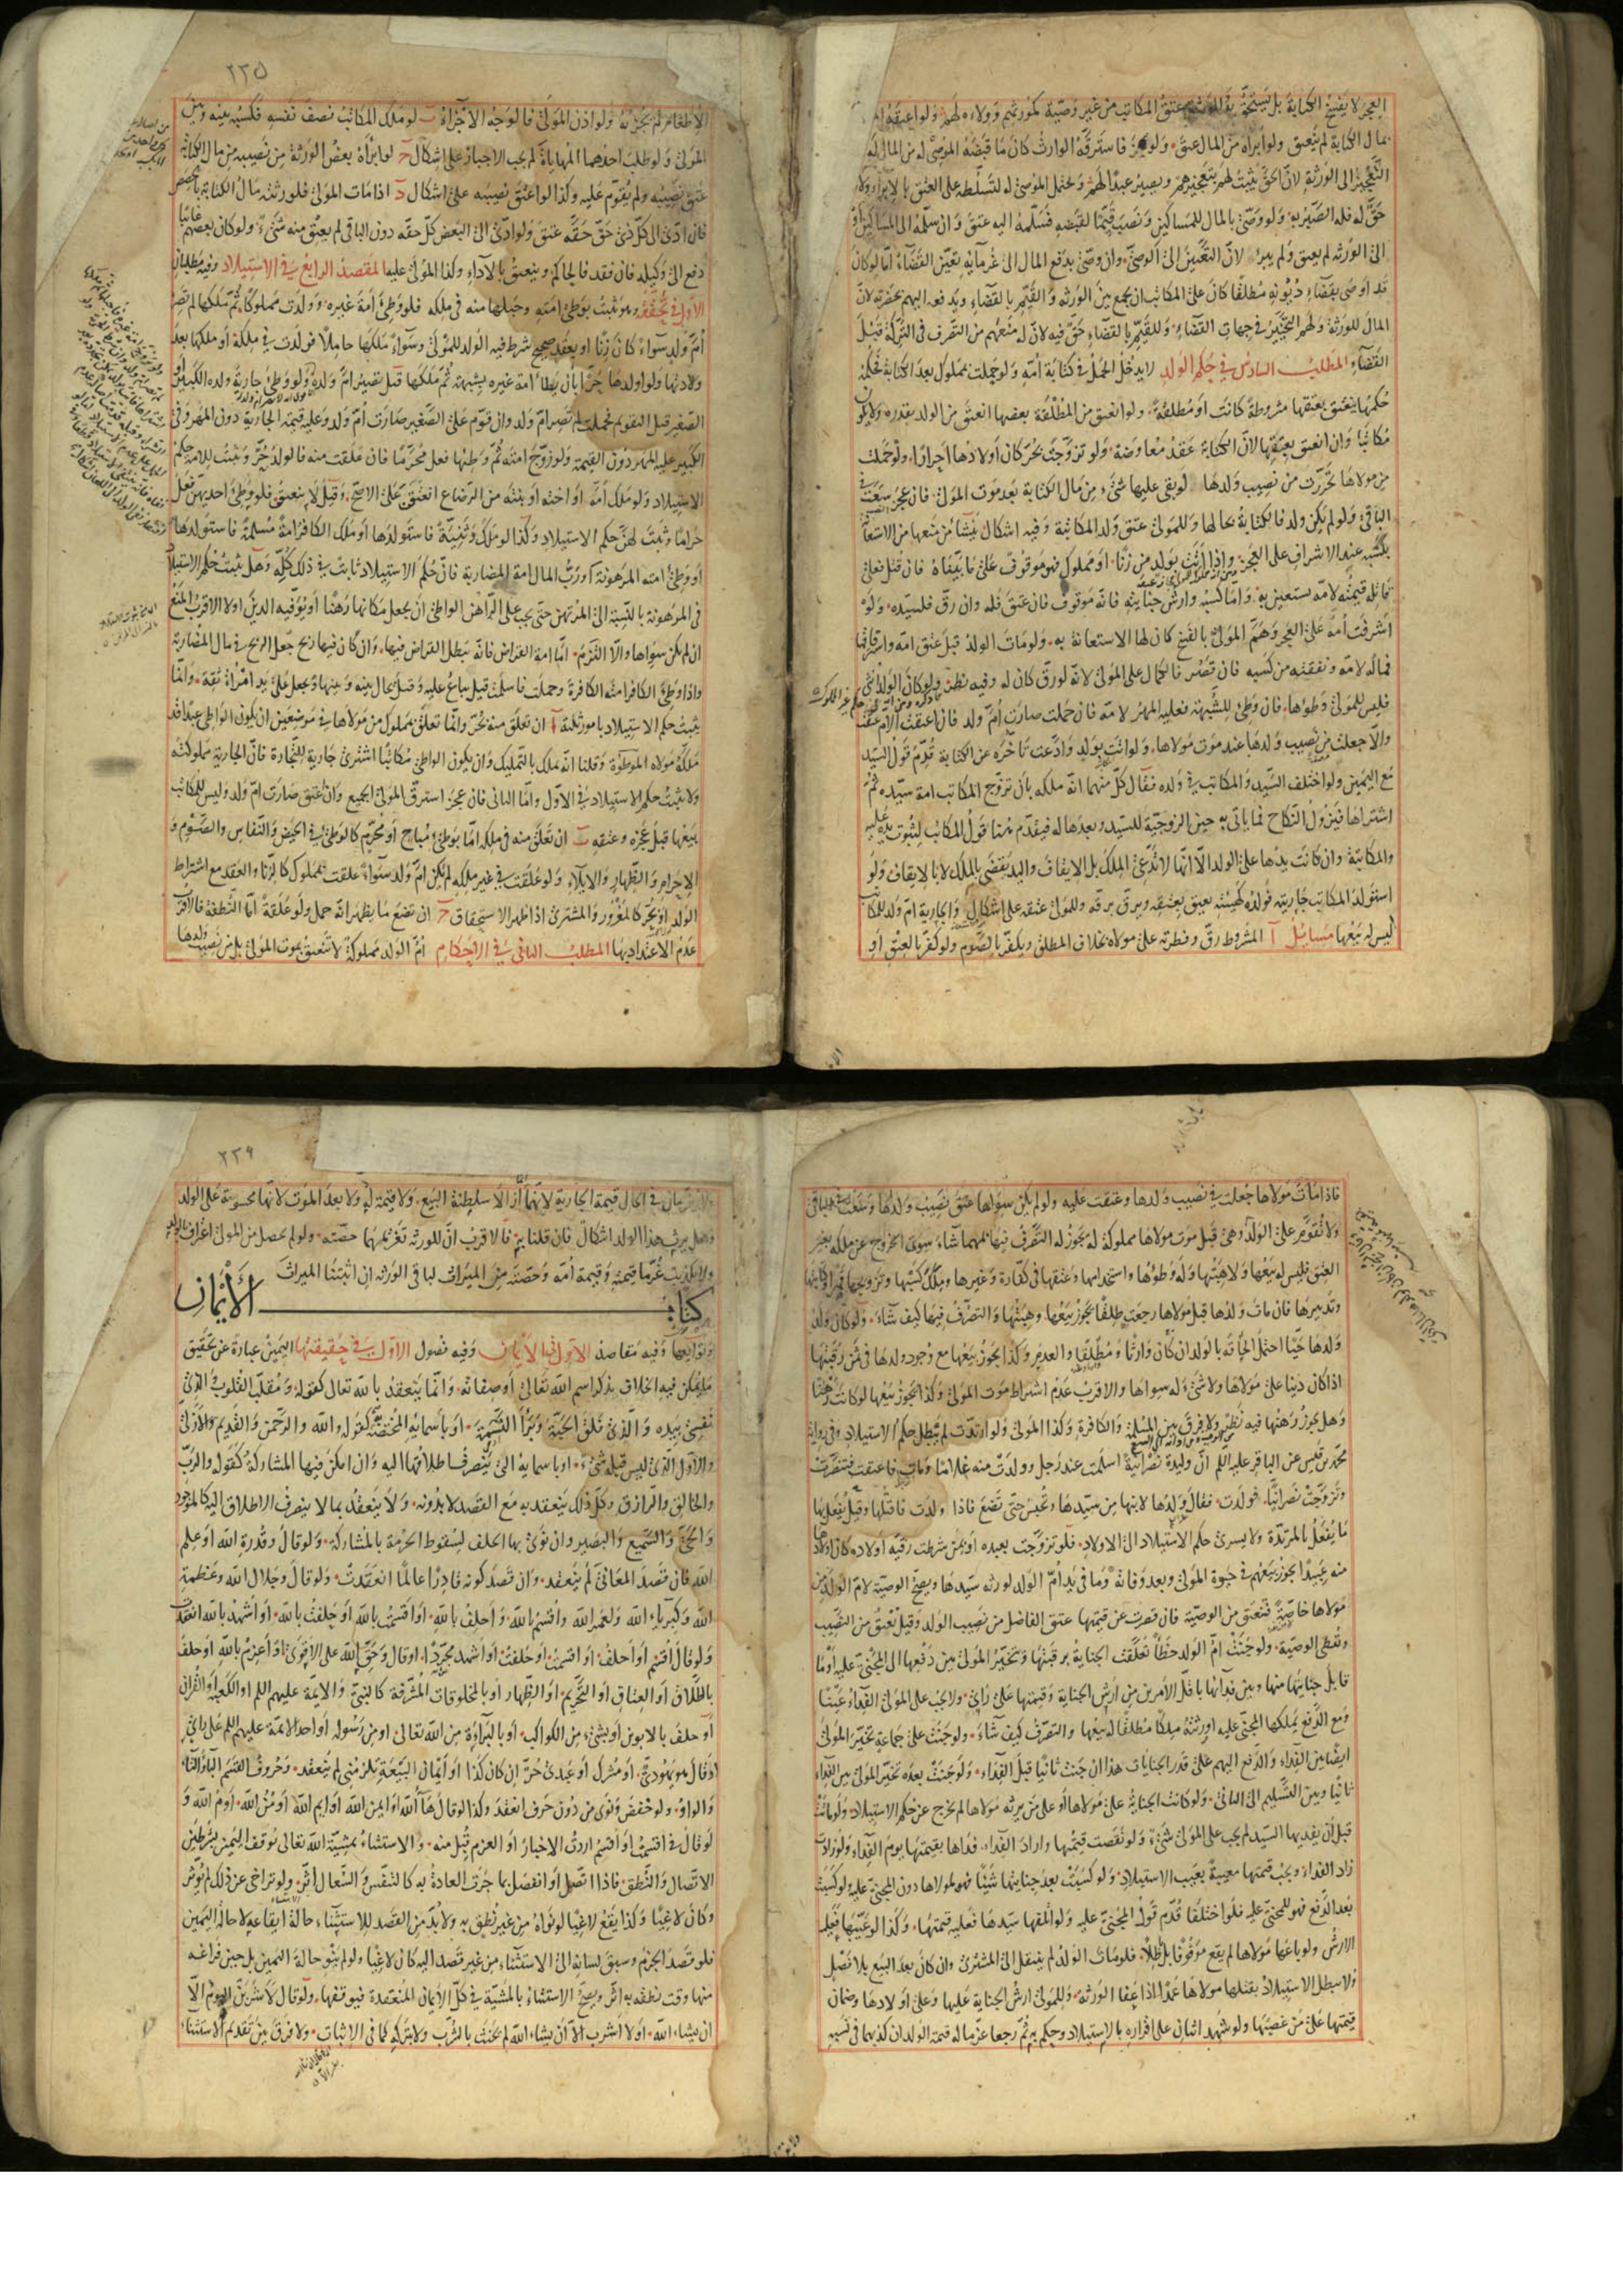 العجز لا يفسخ الكتابة بل يستحق عتق المكاتب من غير وصية كمورثهم وولاءه لهم ولو اعتقوه
بمال الكتابة لم ينعتق ولو ابرأه من المال عتق ولو عجز فاسترقه الوارث كان ما قبضه الموصى له من المال له
التعجيز الى الورثة لان الحق يثبت لهم بتعجيزهم ويصير عبدا لهم ويحتمل الموصى له لتسلطه على العتق بالابراء ولا
حق له فله الصبر به ولو وصى بالمال للمساكين ونصب قيما لقبضه فسلمه اليه عتق وان سلمه الى المساكين او
الى الورثة لم يعتق ولم يبرأ لان التعيين الى الوصي وان وصى بدفع المال الى غرمائه تعين القضاء اما لو كان
قد اوصى بقضاء ديونه مطلقا كان على المكاتب ان يجمع بين الورثة والقيم بالقضاء ويدفعه اليهم بحضرته لان
المال للورثة ولهم التخيير في جهات القضاء وللقيم بالقضاء حق فيه لان له منعهم من التصرف في التركة قبل
القضاء المطلب السادس في حكم الولد لا يدخل الحمل في كتابة امه ولو حملت بمملوك بعد الكتابة فحكمه
حكمها ينعتق بعتقها مشروطة كانت او مطلقة ولو انعتق من المطلقة بعضها انعتق من الولد بقدره ولا يكون
مكاتبا وان انعتق بعتقها لان الكتابة عقد معاوضة ولو تزوجت بحر كان اولادها احرارا ولو حملت
من مولاها تحررت من نصيب ولدها لو بقي عليها شيء من مال الكتابة بعد موت المولى فان عجز سعت في
الباقي ولو لم يكن ولد فالكتابة بحالها وللمولى عتق ولد المكاتبة وفيه اشكال ينشأ من منعها من الاستعانة
بكسبه عند الاشراف على العجز واذا اتت بولد من زنا او مملوك فهو موقوف على ما بيناه فان قتل فعلى
قاتله قيمته لامه تستعين به واما كسبه وارش جنايته فانه موقوف فان عتق فله وان رق فلسيده ولو
اشرفت امه على العجز وهم المولى بالفسخ كان لها الاستعانة به ولو مات الولد قبل عتق امه واسترقاقها
فماله لامه ونفقته من كسبه فان قصر فالكمال على المولى لانه لو رق كان له وفيه نظر ولو كان الولد انثى
فليس للمولى وطؤها فان وطئ للشبهة فعليه المهر لامه فان حملت صارت ام ولد فان اعتقت الام عتقت
والا جعلت من نصيب ولدها عند موت مولاها ولو اتت بولد وادعت تأخره عن الكتابة قدم قول السيد
مع اليمين ولو اختلف السيد والمكاتب في ولده فقال كل منهما انه ملكه بان تزوج المكاتب امة سيده ثم
اشتراها فيزول النكاح فما ياتي به حين الزوجية للسيد وبعدها له فيقدم هنا قول المكاتب لثبوت يده عليه
والمكاتبة وان كانت يدها على الولد الا انها لا تدعي الملك بل الايقاف واليد يقضى بالملك لا بالايقاف ولو
استولد المكاتب جاريته فولده كهيئته يعتق بعتقه ويرق برقه وللمولى عتقه على اشكال والجارية ام ولد للمكاتب
ليس له بيعها مسائل آ المشروط رق وفطرته على مولاه بخلاف المطلق ويكفر بالصوم ولو كفر بالعتق او
٢٣٥
الاطعام لم يجزئه ولو اذن المولى فالوجه الاجزاء ب لو ملك المكاتب نصف نفسه فكسبه بينه وبين
المولى ولو طلب احدهما المهاياة لم يجب الاجبار على اشكال ج لو ابرأه بعض الورثة من نصيبه من مال الكتابة
عتق نصيبه ولم يقوم عليه وكذا لو اعتق نصيبه على اشكال د اذا مات المولى فلورثته مال الكتابة بالحصص
فان ادى الى كل ذي حق حقه عتق ولو ادى الى البعض كل حقه دون الباقي لم يعتق منه شيء ولو كان بعضهم غائبا
دفع الى وكيله فان فقد فالحاكم وينعتق بالاداء وكذا المولى عليه المقصد الرابع في الاستيلاد وفيه مطلبان
الاول في تحققه وهو يثبت بوطئ امته وحبلها منه في ملكه فلو وطئ امة غيره وولدت مملوكا ثم ملكها لم تصر
ام ولد سواء كان زنا او بعقد صحيح شرط فيه الولد للمولى وسواء ملكها حاملا فولدت في ملكه او ملكها بعد
ولادتها ولو اولدها حرا بان يطأ امة غيره بشبهة ثم ملكها قبل تصير ام ولد ولو وطئ جارية ولده الكبير او
الصغير قبل التقويم فحملت لم تصر ام ولد وان قوم على الصغير صارت ام ولد وعليه قيمة الجارية دون المهر وفي
الكبير عليه المهر دون القيمة ولو زوج امته ثم وطئها فعل محرما فان علقت منه فالولد حر ويثبت للامة حكم
الاستيلاد ولو ملك امه او اخته او بنته من الرضاع انعتق على الاصح وقيل لا ينعتق فلو وطئ احديهن فعل
حراما ويثبت لهن حكم الاستيلاد وكذا لو ملك وثنية فاستولدها او ملك الكافر امة مسلمة فاستولدها
او وطئ امته المرهونة او رب المال امة المضاربة فان حكم الاستيلاد ثابت في ذلك كله وهل يثبت حكم الاستيلاد
في المرهونة بالنسبة الى المرتهن حتى يجب على الراهن الواطئ ان يجعل مكانها رهنا او يوفيه الدين او لا الاقرب المنع
ان لم يكن سواها والا التزم اما امة القراض فانه يبطل القراض فيها وان كان فيها ربح جعل الربح في مال المضاربة
واذا وطئ الكافر امته الكافرة وحملت فاسلمت قيل تباع عليه وقيل يحال بينه وبينها وتجعل على يد امرأة ثقة وانما
يثبت حكم الاستيلاد بامور ثلثة آ ان تعلق منه بحر وانما تعلق بمملوك من مولاها في موضعين ان يكون الواطئ عبدا قد
ملكه مولاه الموطوءة وقلنا انه يملك بالتمليك وان يكون الواطئ مكاتبا اشترى جارية للتجارة فان الجارية مملوكته
ولا يثبت حكم الاستيلاد في الاول واما الثاني فان عجز استرق المولى الجميع وان عتق صارت ام ولد وليس للمكاتب
بيعها قبل عجزه وعتقه ب ان تعلق منه في ملكه اما بوطئ مباح او محرم كالوطئ في الحيض والنفاس والصوم و
الاحرام والظهار والايلاء ولو علقت في غير ملكه لم يكن ام ولد سواء علقت بمملوك كالزنا والعقد مع اشتراط
الولد او بحر كالمغرور والمشتري اذا ظهر الاستحقاق ج ان تضع ما يظهر انه حمل ولو علقة اما النطفة فالاقرب
عدم الاعتداد بها المطلب الثاني في الاحكام ام الولد مملوكة لا تنعتق بموت المولى بل من نصيب ولدها
فاذا مات مولاها جعلت في نصيب ولدها وعتقت عليه ولو لم يكن سواها عتق نصيب ولدها وسعت في الباقي
ولا تقوم على الولد وهي قبل موت مولاها مملوكة له يجوز له التصرف فيها مهما شاء سوى الخروج عن ملكه بغير
العتق فليس له بيعها ولا هبتها وله وطؤها واستخدامها وعتقها في كفارة وغيرها وملك كسبها وتزويجها قهرا وكتابتها
وتدبيرها فان مات ولدها قبل مولاها رجعت طلقا يجوز بيعها وهبتها والتصرف فيها كيف شاء ولو كان ولد
ولدها حيا احتمل الحاقه بالولد ان كان وارثا ومطلقا والعدم وكذا يجوز بيعها مع وجود ولدها في ثمن رقبتها
اذا كان دينا على مولاها ولا شيء له سواها والاقرب عدم اشتراط موت المولى وكذا يجوز بيعها لو كانت رهنا
وهل يجوز رهنها فيه نظر ولا فرق بين المسلمة والكافرة وكذا المولى ولو ارتدت لم يبطل حكم الاستيلاد وفي رواية
محمد بن قيس عن الباقر عليه السلم ان وليدة نصرانية اسلمت عند رجل وولدت منه غلاما ومات فاعتقت فتنصرت
وتزوجت نصرانيا فولدت فقال ولدها لابنها من سيدها وتحبس حتى تضع فاذا ولدت فاقتلها وقيل يفعل بها
ما يفعل بالمرتدة ولا يسري حكم الاستيلاد الى الاولاد فلو تزوجت بعبده او بمن شرطت رقية اولاده كان اولادها
منه عبيدا يجوز بيعهم في حيوة المولى وبعد وفاته وما في يد ام الولد لورثة سيدها ويصح الوصية لام الولد من
مولاها خاصة فتعتق من الوصية فان قصرت عن قيمتها عتق الفاضل من نصيب الولد وقيل تعتق من النصيب
وتعطى الوصية ولو جنت ام الولد خطأ تعلقت الجناية برقبتها ويتخير المولى بين دفعها الى المجني عليه او ما
قابل جنايتها منها وبين فدائها باقل الامرين من ارش الجناية وقيمتها على رأي ولا يجب على المولى الفداء عينا
ومع الدفع يملكها المجني عليه او ورثته ملكا مطلقا له بيعها والتصرف كيف شاء ولو جنت على جماعة تخير المولى
ايضا بين الفداء والدفع اليهم على قدر الجنايات هذا ان جنت ثانيا قبل الفداء ولو جنت بعده تخير المولى بين الفداء
ثانيا وبين التسليم الى الثاني ولو كانت الجناية على مولاها او على من يرثه مولاها لم تخرج عن حكم الاستيلاد ولو ماتت
قبل ان يفديها السيد لم يجب على المولى شيء ولو نقصت قيمتها واراد الفداء فداها بقيمتها يوم الفداء ولو زادت
زاد الفداء ويجب قيمتها معيبة بعيب الاستيلاد ولو كسبت بعد جنايتها شيئا فهو لمولاها دون المجني عليه ولو كسبت
بعد الدفع فهو للمجني عليه فلو اختلفا قدم قول المجني عليه ولو اتلفها سيدها فعليه قيمتها وكذا لو عيبها فعليه
الارش ولو باعها مولاها لم يقع موقوفا بل باطلا فلو مات الولد لم ينتقل الى المشتري وان كان بعد البيع بلا فصل
ولا يبطل الاستيلاد بقتلها مولاها عمدا اذا عفا الورثة وللمولى ارش الجناية عليها وعلى اولادها وضمان
قيمتها على من غصبها ولو شهد اثنان على اقراره بالاستيلاد وحكم به ثم رجعا غرما له قيمة الولد ان كذبهما في نسبه
٢٣٦
في الحال قيمة الجارية لانهما ازالا سلطنة البيع ولا قيمة له ولا بعد الموت لانها محسوبة على الولد
وهل يرث هذا الولد اشكال فان قلنا به فالاقرب ان للورثة تغريمهما حصته ولو لم يحصل من المولى اعتراف بالولد
ولا تكذيب غرما قيمته وقيمة امه وحصته من الميراث لباقي الورثة ان اثبتنا الميراث
كتاب الأيمان
وتوابعها وفيه مقاصد الاول في الايمان وفيه فصول الاول في حقيقتها اليمين عبارة عن تحقيق
ما يمكن فيه الخلاف بذكر اسم الله تعالى او صفاته وانما ينعقد بالله تعالى كقوله ومقلب القلوب والذي
نفسي بيده والذي فلق الحبة وبرأ النسمة او باسمائه المختصة به كقوله والله والرحمن والقديم والازلي
والاول الذي ليس قبله شيء او باسمائه التي ينصرف اطلاقها اليه وان امكن فيها المشاركة كقوله والرب
والخالق والرازق وكل ذلك ينعقد به مع القصد لا بدونه ولا ينعقد بما لا ينصرف الاطلاق اليه كالموجود
والحي والسميع والبصير وان نوى بها الحلف لسقوط الحرمة بالمشاركة ولو قال وقدرة الله او علم
الله فان قصد المعاني لم ينعقد وان قصد كونه قادرا عالما انعقدت ولو قال وجلال الله وعظمة
الله وكبرياء الله ولعمر الله واقسم بالله واحلف بالله او اقسمت بالله او حلفت بالله او اشهد بالله انعقد
ولو قال اقسم او احلف او اقسمت او حلفت او اشهد مجردا او قال وحق الله على الاقوى او اعزم بالله او حلف
بالطلاق او العتاق او التحريم او الظهار او بالمخلوقات المشرفة كالنبي والائمة عليهم السلم او الكعبة او القران
او حلف بالابوين او بشيء من الكواكب او بالبراءة من الله تعالى او من رسوله او احد الائمة عليهم السلم على رأي
او قال هو يهودي او مشرك او عبدي حر ان كان كذا او ايمان البيعة تلزمني لم ينعقد وحروف القسم الباء والتاء
والواو ولو خفض ونوى من دون حرف انعقد وكذا لو قال ها الله او ايمن الله او ايم الله او من الله او م الله و
لو قال في اقسمت او اقسم اردت الاخبار او العزم قبل منه والاستثناء بمشية الله تعالى توقف اليمين بشرطين
الاتصال والنطق فاذا اتصل او انفصل بما جرت العادة به كالتنفس والسعال اثر ولو تراخى عن ذلك لم يؤثر
وكان لاغيا وكذا يقع لاغيا لو نواه من غير نطق به ولا بد من القصد للاستثناء حالة ايقاعه لا حالة اليمين
فلو قصد الجزم وسبق لسانه الى الاستثناء من غير قصد اليه كان لاغيا ولو لم ينو حالة اليمين بل حين فراغه
منها وقت نطقه به اثر ويصح الاستثناء بالمشية في كل الايمان المنعقدة فيوقفها ولو قال لاشربن اليوم الا
ان يشاء الله او لا اشرب الا ان يشاء الله لم يحنث بالشرب ولا بتركه كما في الاثبات ولا فرق بين تقديم الاستثناء